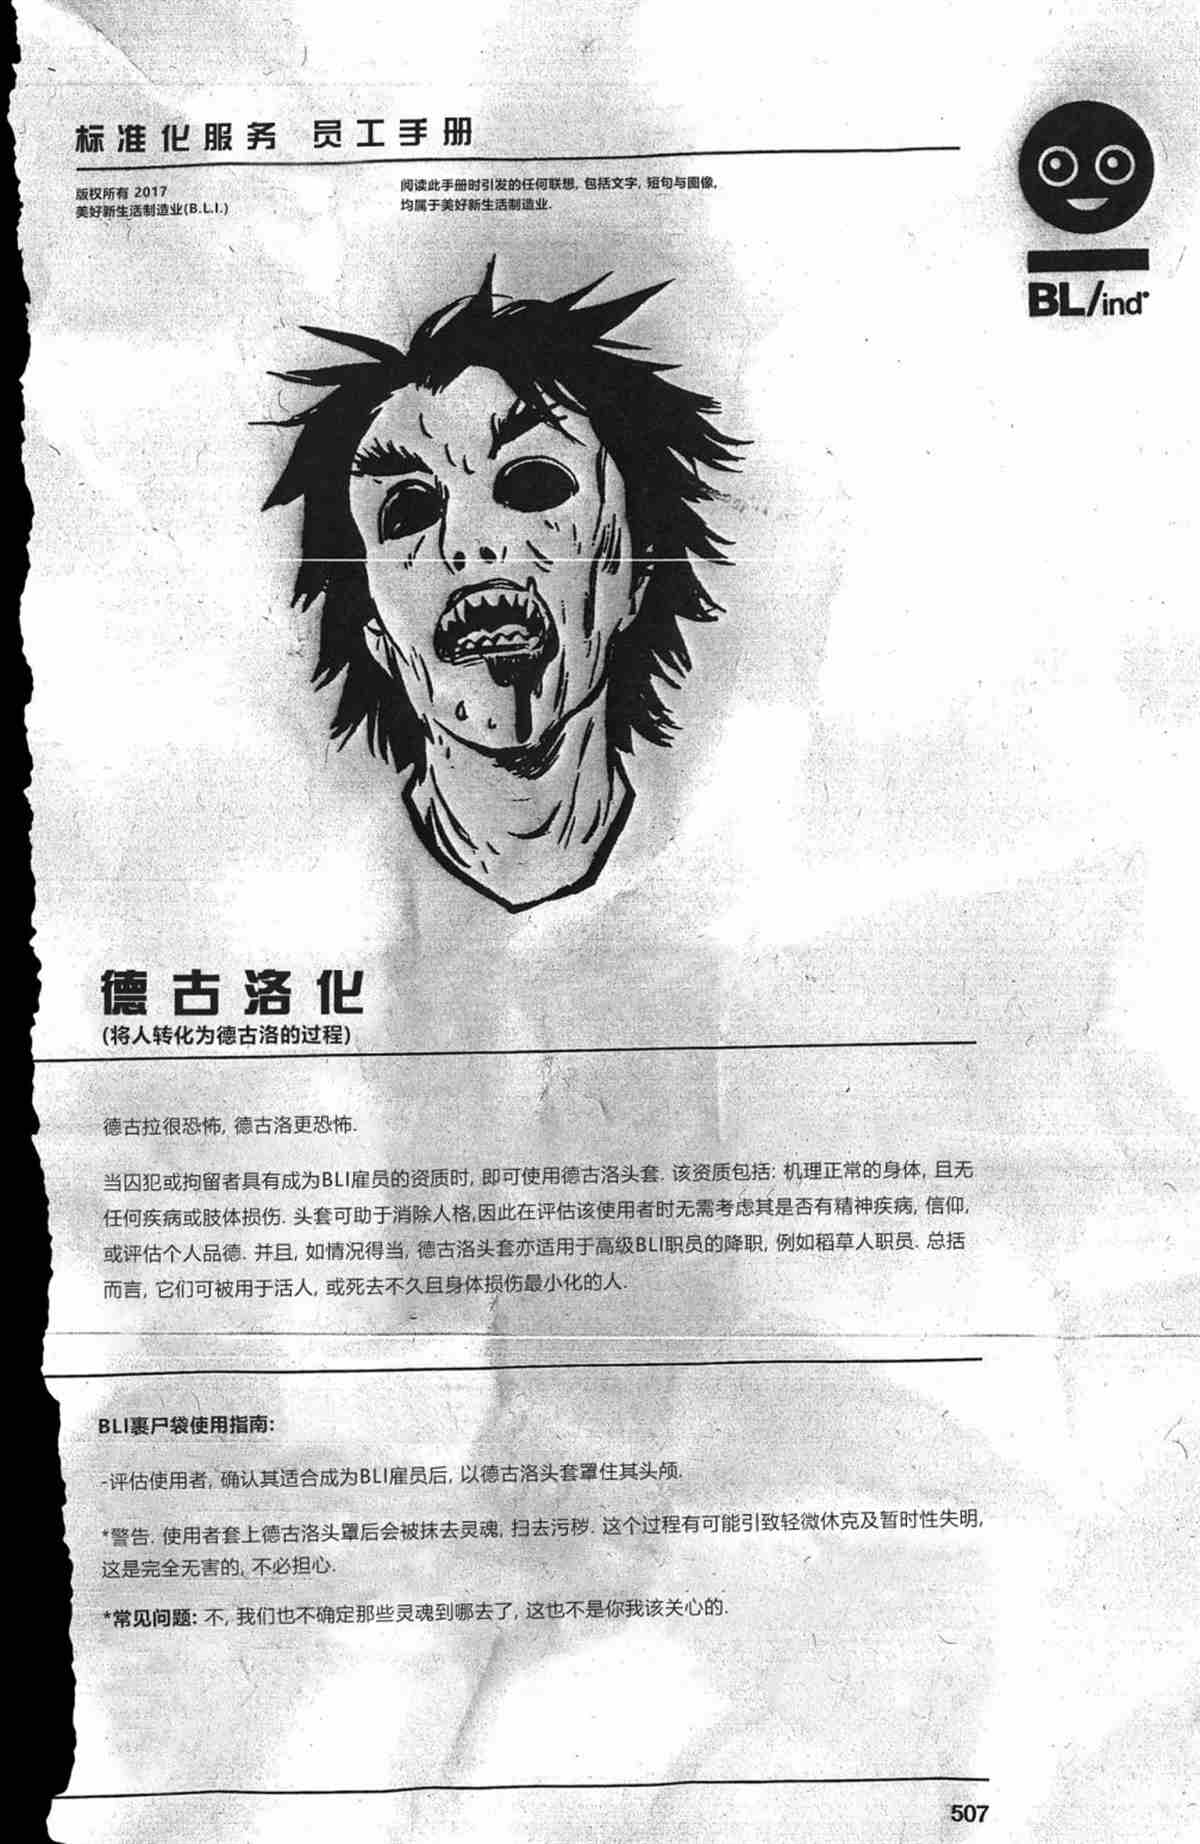 标准化服务 员工手册
版权所有 2017
美好新生活制造业(B.L.I.)
阅读此手册时引发的任何联想, 包括文字, 短句与图像,
均属于美好新生活制造业.
BL/ind
德古洛化
(将人转化为德古洛的过程)
德古拉很恐怖, 德古洛更恐怖.
当囚犯或拘留者具有成为BLI雇员的资质时, 即可使用德古洛头套. 该资质包括: 机理正常的身体, 且无
任何疾病或肢体损伤. 头套可助于消除人格,因此在评估该使用者时无需考虑其是否有精神疾病, 信仰,
或评估个人品德. 并且, 如情况得当, 德古洛头套亦适用于高级BLI职员的降职, 例如稻草人职员. 总括
而言, 它们可被用于活人, 或死去不久且身体损伤最小化的人.
BLI裹尸袋使用指南:
-评估使用者, 确认其适合成为BLI雇员后, 以德古洛头套罩住其头颅.
*警告. 使用者套上德古洛头罩后会被抹去灵魂, 扫去污秽. 这个过程有可能引致轻微休克及暂时性失明,
这是完全无害的, 不必担心.
*常见问题: 不, 我们也不确定那些灵魂到哪去了, 这也不是你我该关心的.
507